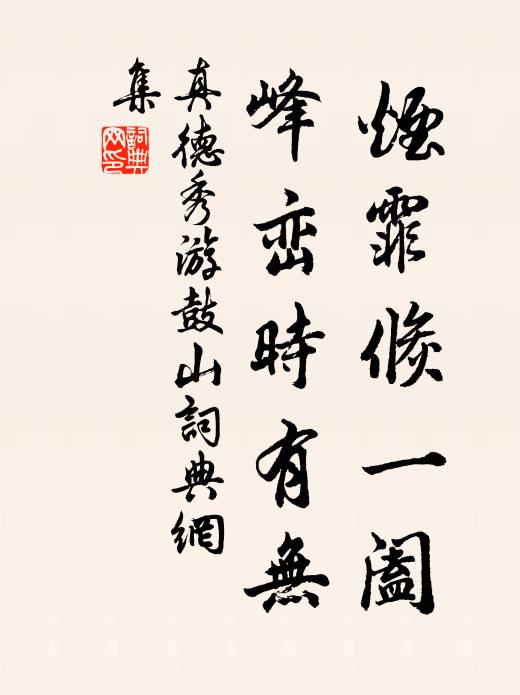 煙霏倏一阖
峰峦時有無
真德秀游鼓山詞典網
集
詞典
网印